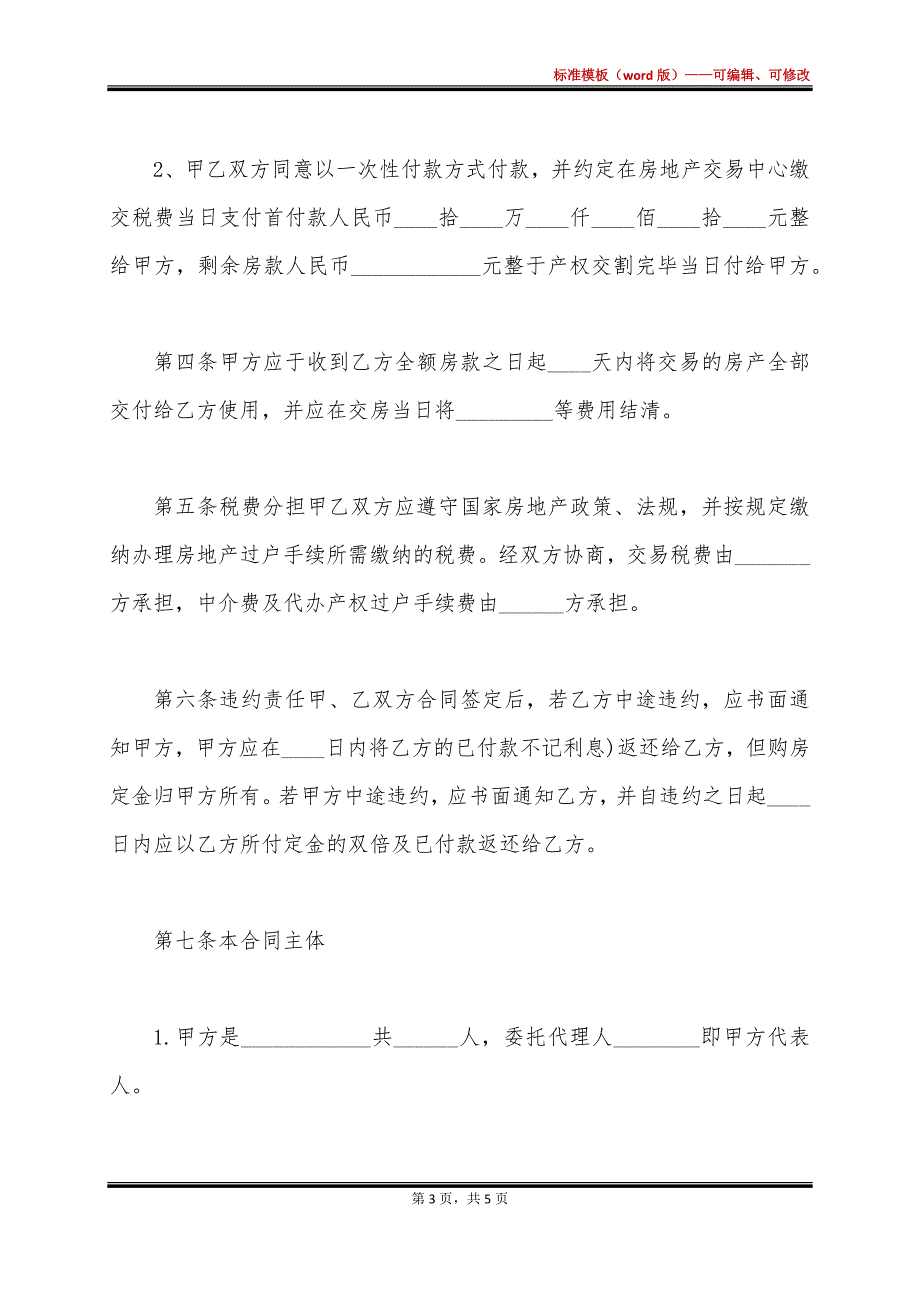 标准模板（word 版）——可编辑、可修改
2、甲乙双方同意以一次性付款方式付款，并约定在房地产交易中心缴
交税费当日支付首付款人民币____拾____万____仟____佰____拾____元整
给甲方，剩余房款人民币____________元整于产权交割完毕当日付给甲方。
第四条甲方应于收到乙方全额房款之日起____天内将交易的房产全部
交付给乙方使用，并应在交房当日将_________等费用结清。
第五条税费分担甲乙双方应遵守国家房地产政策、法规，并按规定缴
纳办理房地产过户手续所需缴纳的税费。经双方协商，交易税费由_______
方承担，中介费及代办产权过户手续费由______方承担。
第六条违约责任甲、乙双方合同签定后，若乙方中途违约，应书面通
知甲方，甲方应在____日内将乙方的已付款不记利息)返还给乙方，但购房
定金归甲方所有。若甲方中途违约，应书面通知乙方，并自违约之日起____
日内应以乙方所付定金的双倍及已付款返还给乙方。
第七条本合同主体
1.甲方是____________共______人，委托代理人________即甲方代表
人。
第 3 页，共 5 页